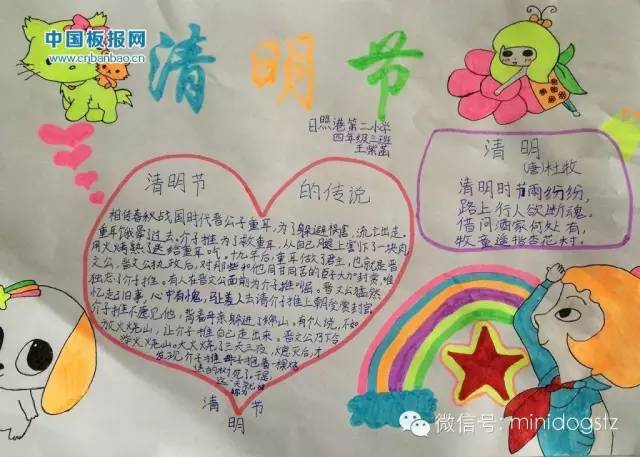 中国板报网
www.cnbanbao.cn
清明节
日照港第二小学
四年级三班
清明节的传说
相传春秋战国时代晋公子重耳,为了躲避祸害,流亡出走
重耳饿晕了过去。介子推为了救重耳,从自己腿上割下了一块肉
用火烤熟了送给重耳吃。十九年后,重耳做了君主,也就是晋
文公。晋文公执政后,对那些和他同甘共苦的臣子大加封赏,唯
独忘了介子推。有人在晋文公面前为介子推叫屈。晋文公猛然
忆起旧事,心中有愧,
去请介子推上朝受封赏官
介子推不愿见他,背着母亲躲进了绵山。有个人说,不如
放火烧山,让介子推自己走出来。晋文公乃下令
火烧山。大火烧了三天三夜,熄灭后,才
发现介子推母子抱着一棵烧
焦的树死了。
清明节
清明
(唐)杜牧
清明时节雨纷纷,
路上行人欲断魂。
借问酒家何处有,
牧童遥指杏花村。
微信号: minidogstz